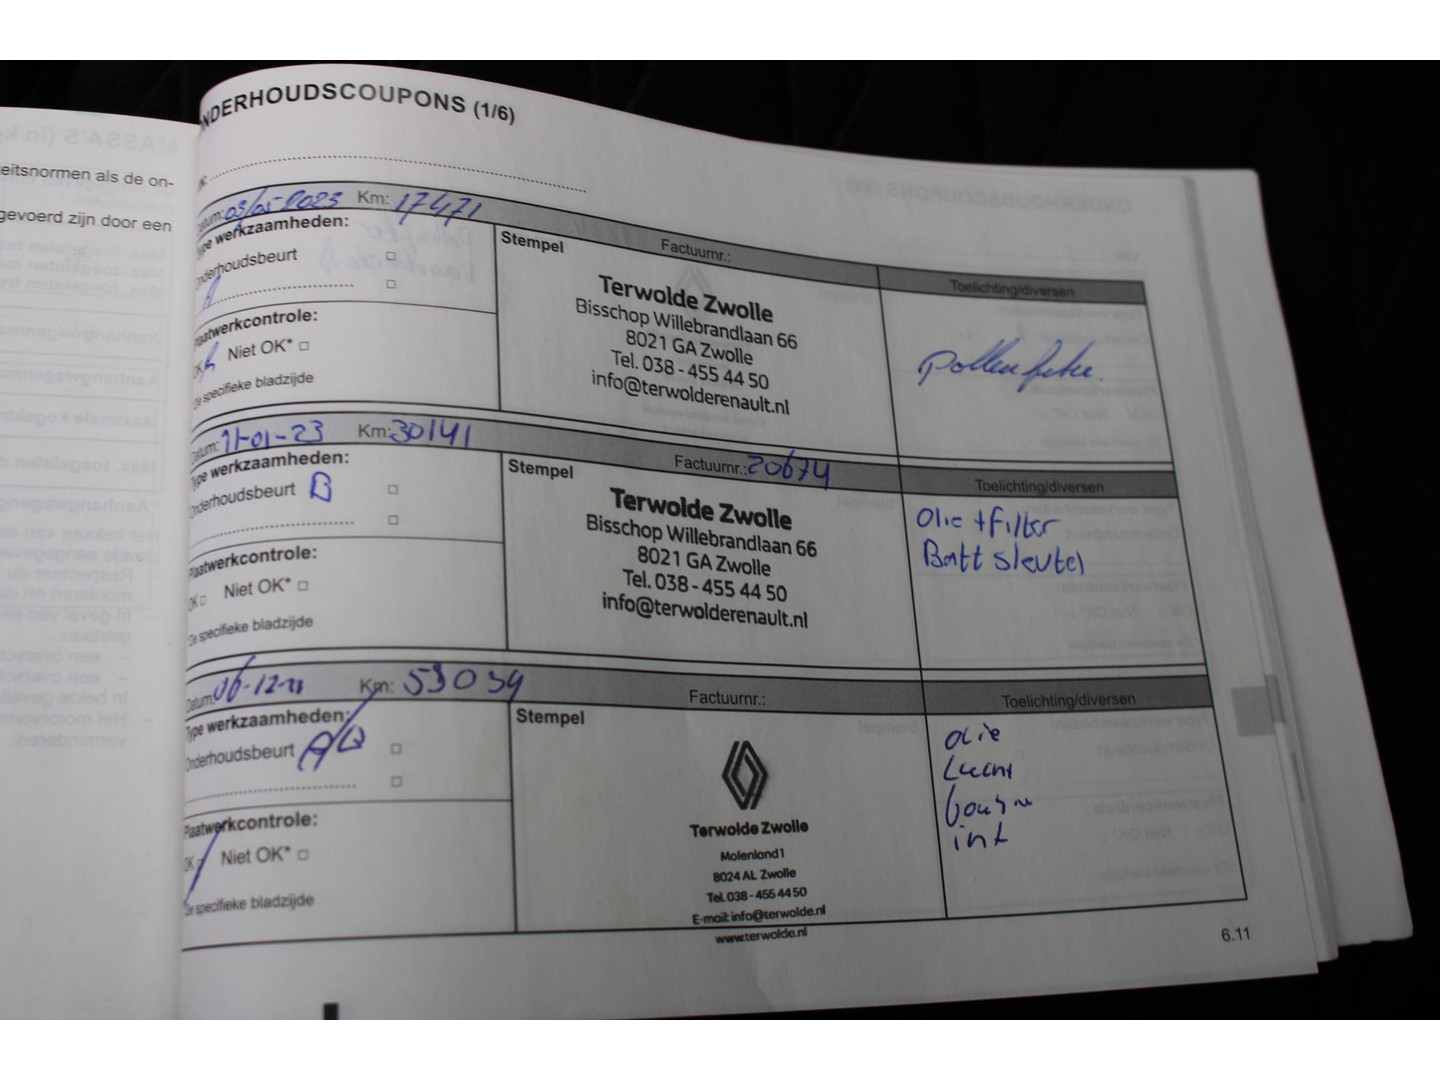 NDERHOUDSCOUPONS (1/6)
eitsnormen als de on-
gevoerd zijn door een
Datum: 03/05-2023 Km: 17471 Factuurnr.: Toelichting/diversen
Type werkzaamheden:
Onderhoudsbeurt
A
Plaatwerkcontrole:
OK Niet OK*
Zie specifieke bladzijde
Stempel
Terwolde Zwolle
Bisschop Willebrandlaan 66
8021 GA Zwolle
Tel. 038 - 455 44 50
info@terwolderenault.nl
pollenfilter.
Datum: 11-01-23 Km: 30141 Factuurnr.: 20674 Toelichting/diversen
Type werkzaamheden:
Onderhoudsbeurt B
Plaatwerkcontrole:
OK Niet OK*
Zie specifieke bladzijde
Stempel
Terwolde Zwolle
Bisschop Willebrandlaan 66
8021 GA Zwolle
Tel. 038 - 455 44 50
info@terwolderenault.nl
olie + filter
Batt sleutel
Datum: 06-12-23 Km: 53034 Factuurnr.: Toelichting/diversen
Type werkzaamheden:
Onderhoudsbeurt A/B
Plaatwerkcontrole:
OK Niet OK*
Zie specifieke bladzijde
Stempel
Terwolde Zwolle
Molenland 1
8024 AL Zwolle
Tel. 038 - 455 44 50
E-mail: info@terwolde.nl
www.terwolde.nl
olie
Lucht
int
6.11